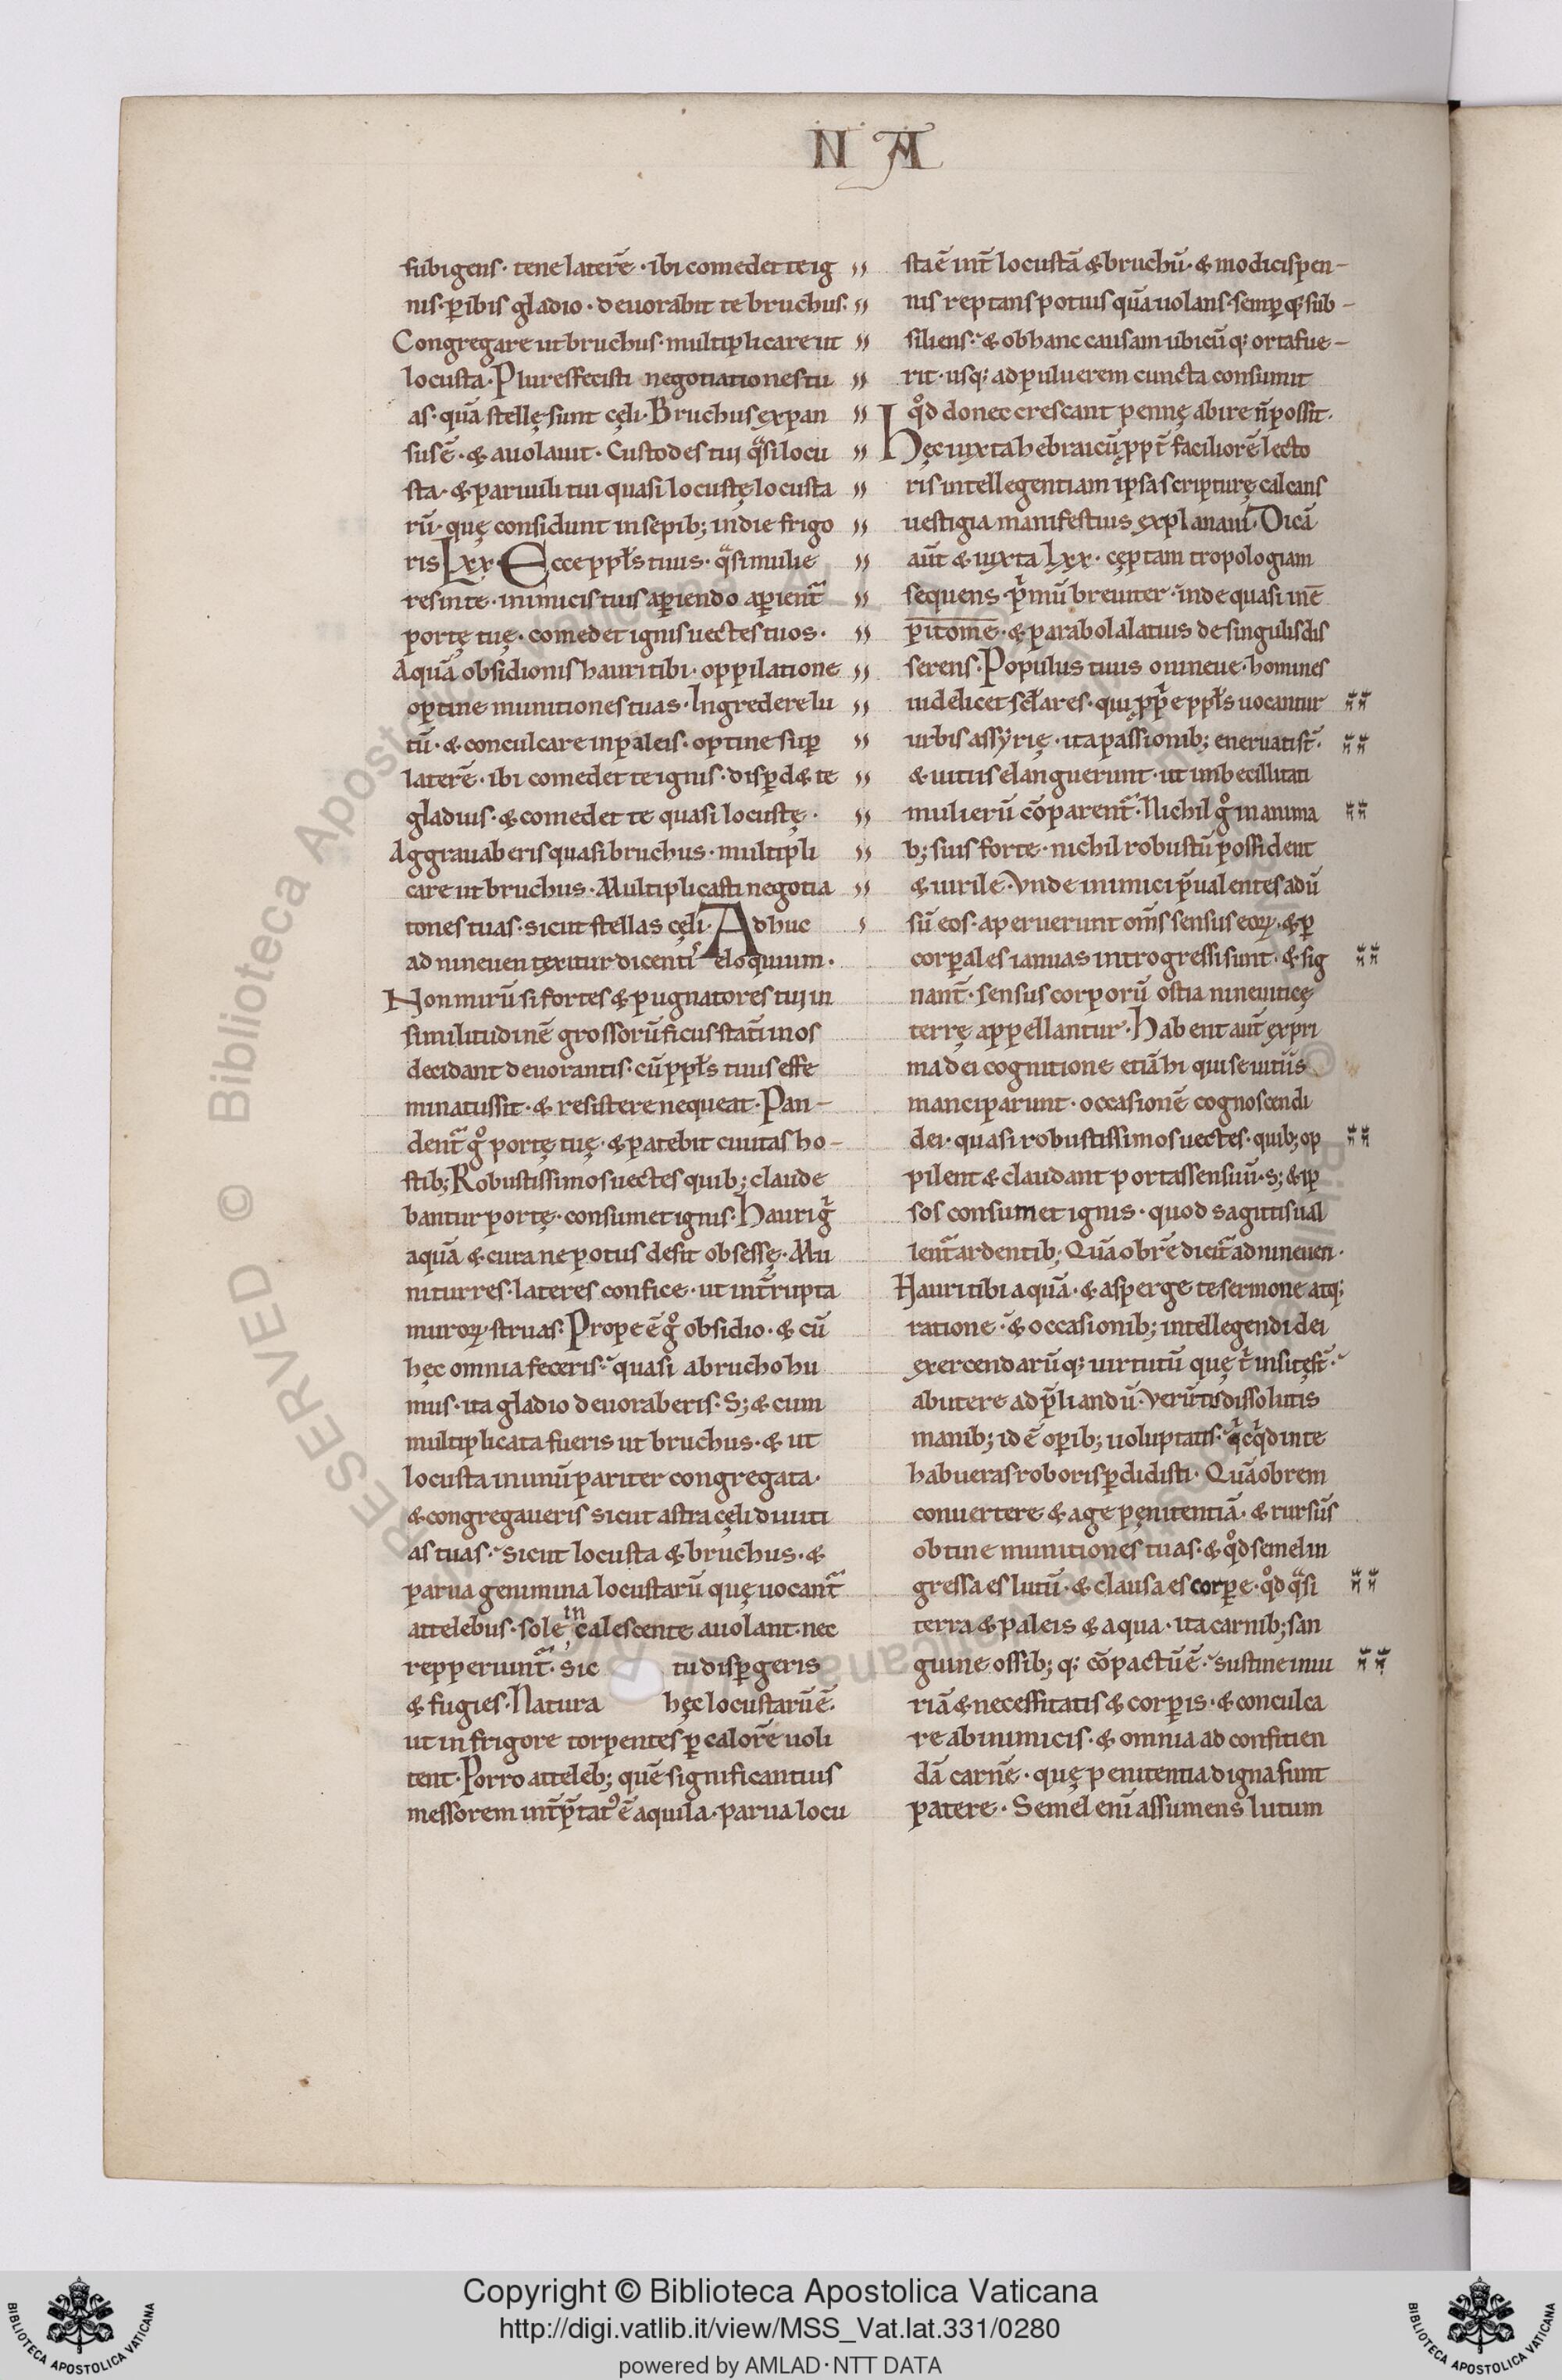 N A
subigens · tene laterē · ibi comedet te ig
nis · ꝑibis gladio · deuorabit te bruchus ·
Congregare ut bruchus · multiplicare ut
locusta · Plures fecisti negotiationes tu
as · quā stellę sunt cęli · Bruchus expan
sus ē · & auolauit · Custodes tui qͣsi locu
sta · & paruuli tui quasi locustę locusta
rū · quę considunt in sepib; in die frigo
ris Lxx · Ecce ppl̄s tuus · qͣsi mulie
res in te · inimicis tuis aperiendo aperientͣ
portę tuę · comedet ignis uectes tuos ·
Aquā obsidionis hauri tibi · oppilatione
optine munitiones tuas · Ingredere lu
tū · & conculcare in paleis · optine suꝑ
laterē · ibi comedet te ignis · disꝑd& te
gladius · & comedet te quasi locustę ·
Aggrauaberis quasi bruchus · multipli
care ut bruchus · Multiplicasti negotia
tones tuas · sicut stellas cęli · Adhuc
ad nineuen texitur dicentis eloquium ·
Non mirū si fortes & pugnatores tui in
similitudinē grossorū ficus statī in os
decidant deuorantis · cū ppl̄s tuus effe
minatus sit · & resistere nequeat · Pan-
dentͣ gͦ portę tuę · & patebit ciuitas ho-
stib; Robustissimos uectes quib; claude
bantur portę · consumet ignis · Haurigͥ
aquā & cura ne potus desit obsessę · Mu
ni turres · lateres confice · ut int̄rupta
muroꝝ struas · Prope ē gͦ obsidio · & cū
hęc omnia feceris · quasi a brucho hu
mus · ita gladio deuoraberis · S; & cum
multiplicata fueris ut bruchus · & ut
locusta in unū pariter congregata ·
& congregaueris sicut astra cęli diuiti
as tuas · sicut locusta & bruchus · &
parua genimina locustarū quę uocantͣ
attelebus · sole incalescente auolant · nec
repperiuntͣ · sic tu disꝑgeris
& fugies · Natura hęc locustarū ē ·
ut in frigore torpentes ꝑ calorē uoli
tent · Porro atteleb; quē significantius
messorem int̄p̄tatꝰ ē aquila · parua locu
sta ē int̄ locustā & bruchū · & modicis pen-
nis reptans potius quā uolans · semꝑq; sub-
siliens · & ob hanc causam ubicūq; orta fue-
rit · usq; ad puluerem cuncta consumit
qͦd donec crescant pennę abire n̄ possit ·
Hęc iuxta hebraicū ꝓpt̄ faciliorē lecto
ris intellegentiam ipsa scripturę calcans
uestigia manifestius explanaui · Dicā
aūt & iuxta Lxx · cęptam tropologiam
sequens pͥmū breuiter · inde quasi in ē
pitome · & parabola latius de singulis dis
serens · Populus tuus o nineue · homines
uidelicet scl̄ares · qui ꝓpͥe ppl̄s uocantur
urbis assyrię · ita passionib; eneruati st̄ ·
& uitiis elanguerunt · ut imbecillitati
mulierū cōparentͣ · Nichil gͦ in anima
b; suis forte · nichil robustū possident
& uirile · Vnde inimici p̄ualentes adū
sū eos · aperuerunt om̄s sensus eoꝝ · & ꝑ
corꝑales ianuas introgressi sunt · & sig
nant̄ · sensus corporū ostia nineuiticę
terrę appellantur · Habent aut̄ ex pri
ma dei cognitione etiā hi qui se uitiis
manciparunt · occasionē cognoscendi
dei · quasi robustissimos uectes · quib; op
pilent & claudant portas sensuū · s; & ip
sos consumet ignis · quod sagittis ual
lentͣ ardentib; Quāobrē dicitͣ ad nineuen ·
Hauri tibi aquā · & asperge te sermone atq;
ratione · & occasionib; intellegendi dei
exercendarūq; uirtutū quę t̄ insitę st̄ ·
abutere ad p̄liandū · Verū tu dissolutis
manib; id ē oꝑib; uoluptatis · qͥcqͥd in te
habueras roboris ꝑdidisti · Quāobrem
conuertere & age pęnitentiā · & rursus
obtine munitiones tuas · & qͦd semel in
gressa es lutū · & clausa es corꝑe · qͦd qͣsi
terra & paleis & aqua · ita carnib; san
guine ossib; q; cōpactū ē · sustine iniu
riā & necessitatis & corꝑis · & conculca
re ab inimicis · & omnia ad confitien
dā carnē · quę penitentia digna sunt
patere · Semel eni assumens lutum
Copyright © Biblioteca Apostolica Vaticana
http://digi.vatlib.it/view/MSS_Vat.lat.331/0280
powered by AMLAD · NTT DATA